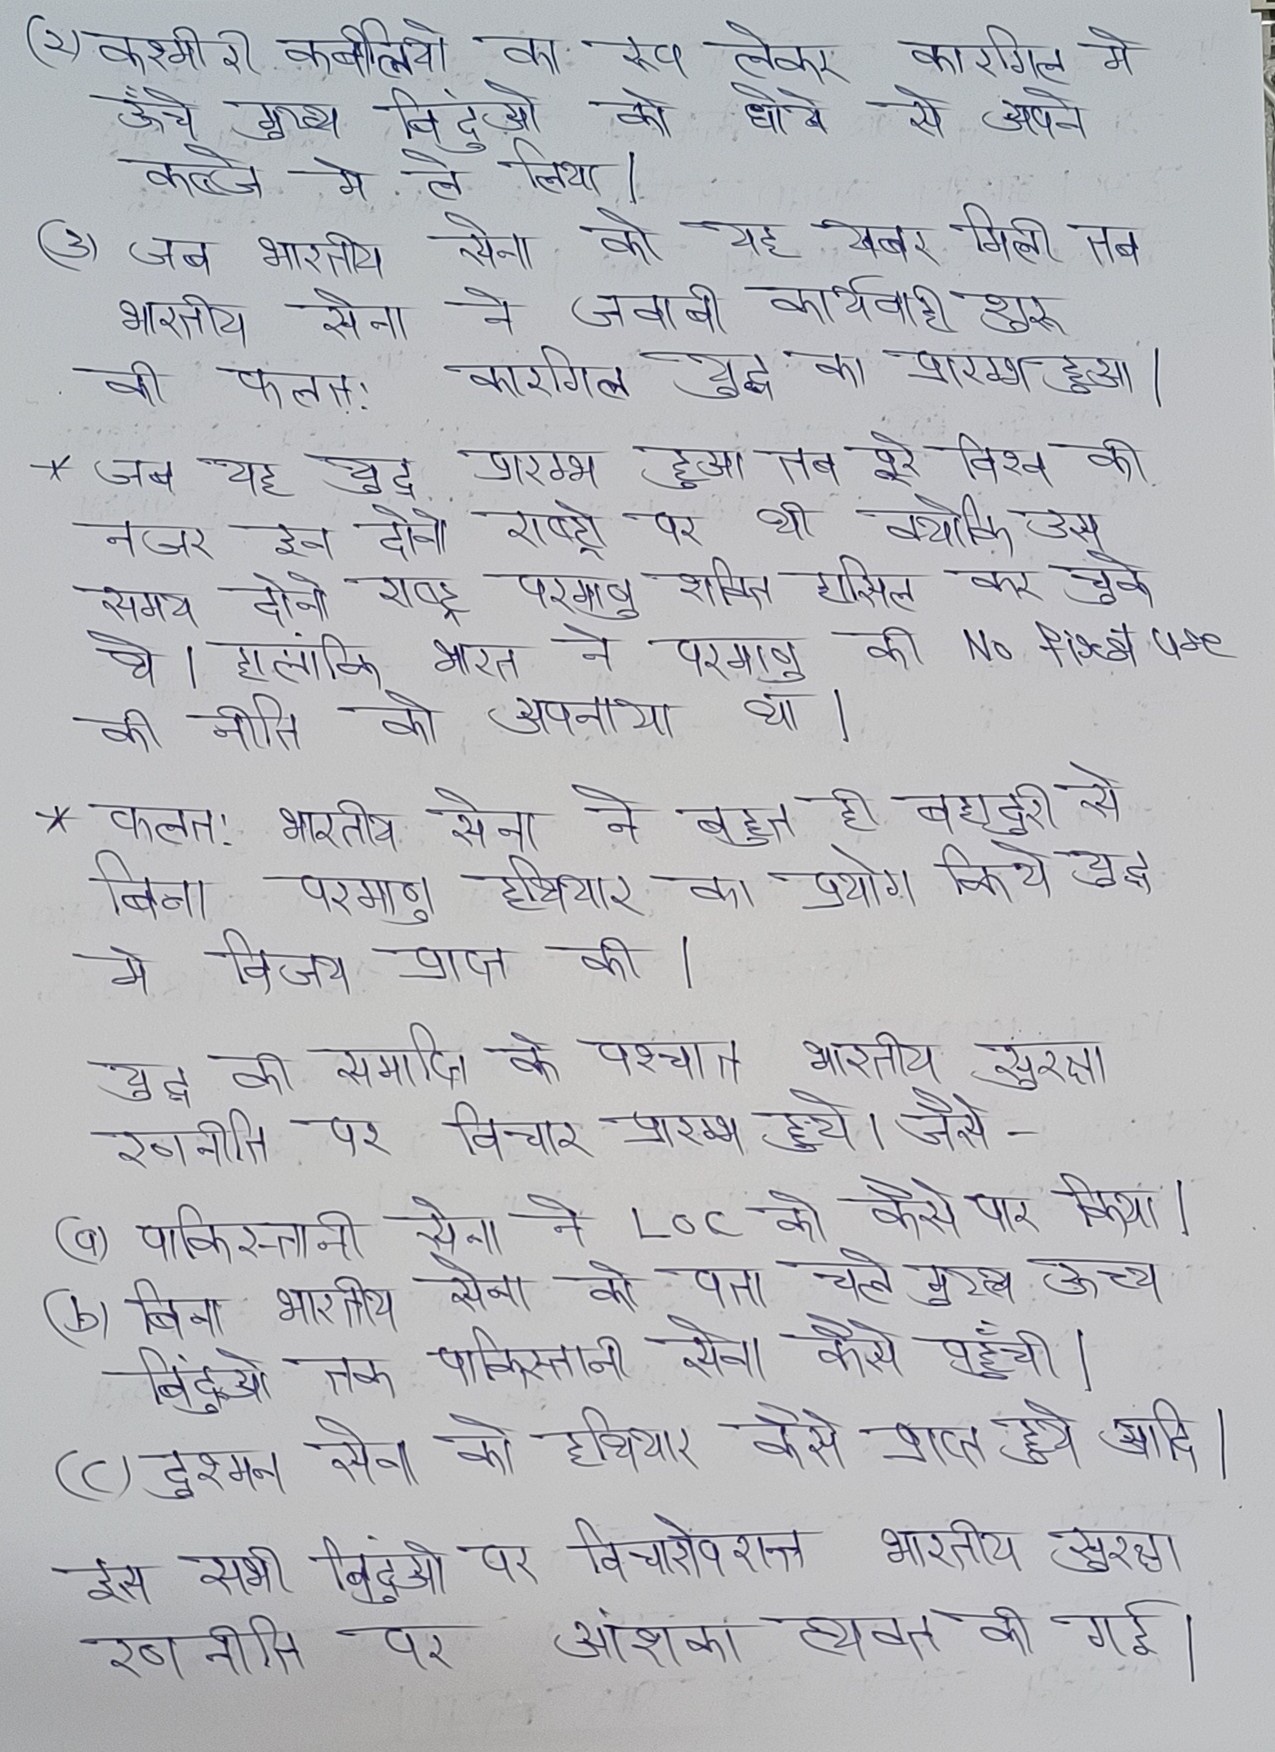 (२) कश्मीरी कबीलियो का रूप लेकर कारगिल मे
ऊँचे मुख्य बिंदुओ को धोखे से अपने
कब्जे मे ले लिया |
(३) जब भारतीय सेना को यह खबर मिली तब
भारतीय सेना ने जवाबी कार्यवाही शुरू
की फलतः कारगिल युद्ध का प्रारम्भ हुआ |
* जब यह युद्ध प्रारम्भ हुआ तब पूरे विश्व की
नजर इन दोनो राष्ट्रो पर थी क्योकि उस
समय दोनो राष्ट्र परमाणु शक्ति हासिल कर चुके
थे | हालांकि भारत ने परमाणु की No First use
की नीति को अपनाया था |
* फलतः भारतीय सेना ने बहुत ही बहादुरी से
बिना परमाणु हथियार का प्रयोग किये युद्ध
मे विजय प्राप्त की |
युद्ध की समाप्ति के पश्चात भारतीय सुरक्षा
रणनीति पर विचार प्रारम्भ हुये | जैसे -
(a) पाकिस्तानी सेना ने LOC को कैसे पार किया |
(b) बिना भारतीय सेना को पता चले मुख्य उच्च
बिंदुओ तक पाकिस्तानी सेना कैसे पहुँची |
(c) दुश्मन सेना को हथियार कैसे प्राप्त हुये आदि |
इस सभी बिंदुओ पर विचारोपरान्त भारतीय सुरक्षा
रणनीति पर आंशका व्यक्त की गई |